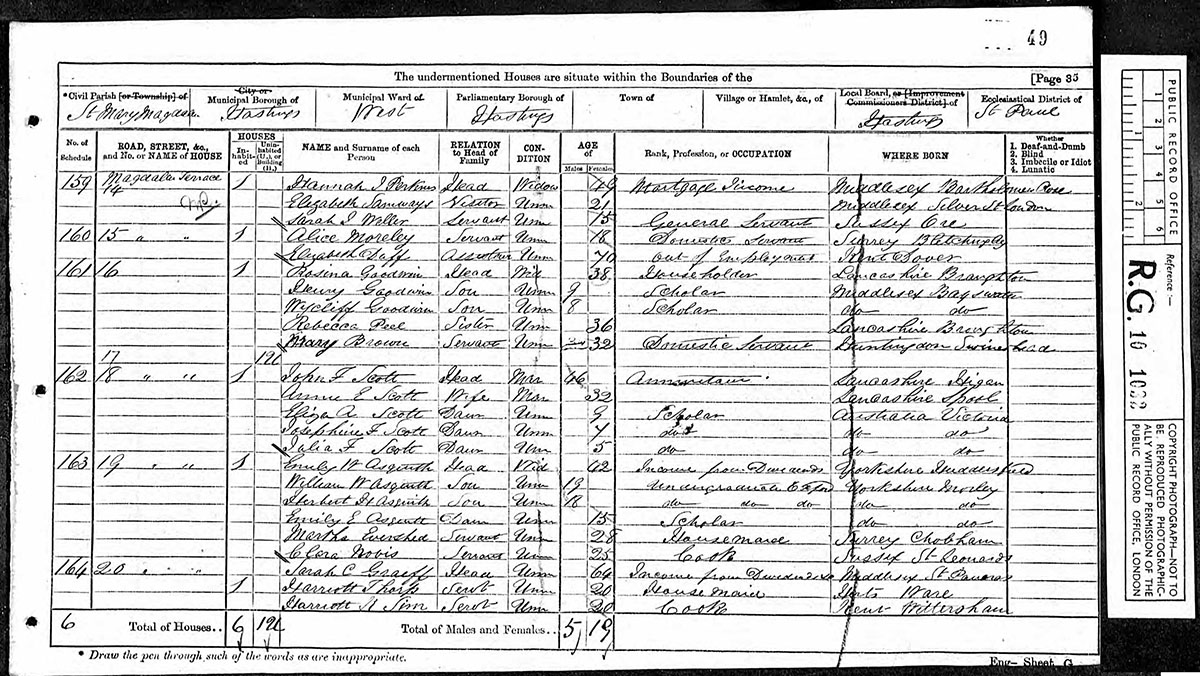 49
The undermentioned Houses are situate within the Boundaries of the [Page 35
*Civil Parish [or Township] of City or Municipal Borough of Municipal Ward of Parliamentary Borough of Town of Village or Hamlet, &c., of Local Board, or [Improvement Commissioners District] of Ecclesiastical District of
St Mary Magdalen Hastings West Hastings Hastings St Paul
No. of Schedule ROAD, STREET, &c., and No. or NAME of HOUSE HOUSES Inhabited Uninhabited (U.), or Building (B.) NAME and Surname of each Person RELATION to Head of Family CONDITION AGE of Males Females Rank, Profession, or OCCUPATION WHERE BORN Whether 1. Deaf-and-Dumb 2. Blind 3. Imbecile or Idiot 4. Lunatic
159 Magdalen Terrace 14 1 Hannah J Perkins Head Widow 49 Mortgage Income Middlesex Bartholomew Close
Elizabeth Samways Visitor Unm 21 Middlesex Silver St London
Sarah J Weller Servant Unm 15 General Servant Sussex Ore
160 15 " " 1 Alice Moreley Servant Unm 18 Domestic Servant Surrey Bletchingley
Elizabeth Daff Unm 70 Out of Employment Kent Dover
161 16 1 Rosina Goodwin Head Wid 38 Householder Lancashire Broughton
Henry Goodwin Son Unm 9 Scholar Middlesex
Wycliff Goodwin Son Unm 8 Scholar do do
Rebecca Peel Sister Unm 36 Lancashire Broughton
Mary Brown Servant Unm 32 Domestic Servant Huntingdon Swineshead
17 1U
162 18 " " 1 John F Scott Head Mar 46 Annuitant Lancashire
Annie E Scott Wife Mar 32 Lancashire Lpool
Eliza A Scott Daur Unm 9 Scholar Australia Victoria
Josephine F Scott Daur Unm 7 do do do
Julia F Scott Daur Unm 5 do do do
163 19 " " 1 Emily W Asquith Head Wid 42 Income from Dividends Yorkshire Huddersfield
William W Asquith Son Unm 19 Undergraduate Oxford Yorkshire Morley
Herbert H Asquith Son Unm 18 do do do do do
Emily E Asquith Daur Unm 15 Scholar do do
Martha Evershed Servant Unm 28 Housemaid Surrey Chobham
Clara Novis Servant Unm 25 Cook Sussex St Leonards
164 20 " " Sarah C Graeff Head Unm 64 Income from Dividends Middlesex St Pancras
1 Harriott Thorp Servt Unm 20 House Maid Herts Ware
Harriott H Sim Servt Unm 20 Cook Kent Wittersham
6 Total of Houses.. 6 1U Total of Males and Females.. 5 19
* Draw the pen through such of the words as are inappropriate.
Eng- Sheet G
PUBLIC RECORD OFFICE
1 2 3 4 5 6
1 2
Reference:-
R.G. 10
COPYRIGHT PHOTOGRAPH-NOT TO BE REPRODUCED PHOTOGRAPHICALLY WITHOUT PERMISSION OF THE PUBLIC RECORD OFFICE, LONDON